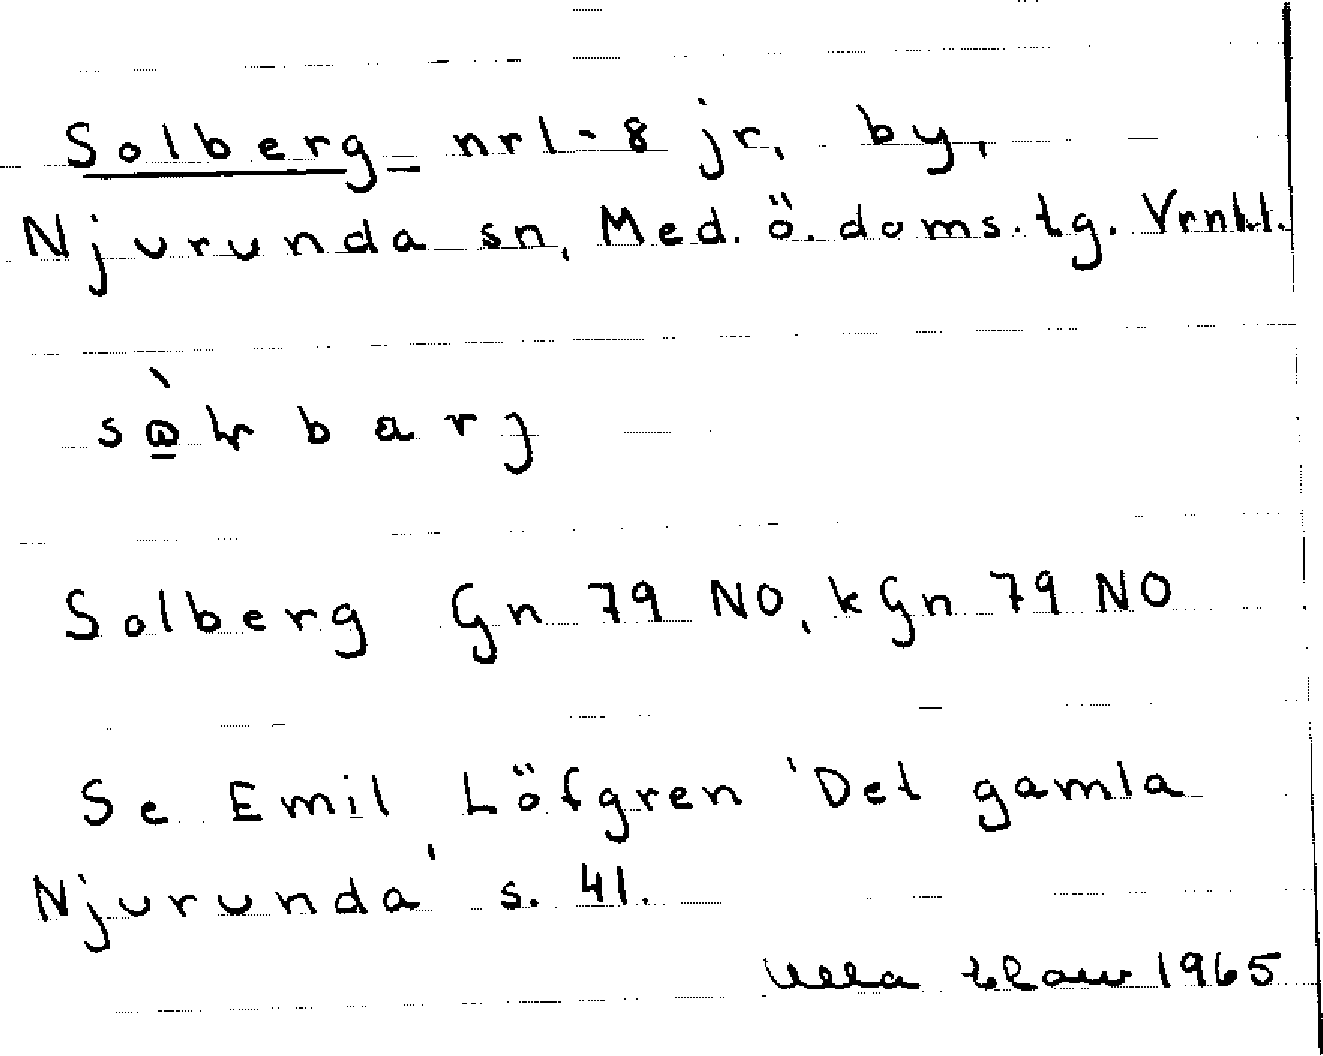 Solberg nr1-8 jr, by,
Njurunda sn, Med. ö. doms. tg. Vrnl.
Solberg Gn 79 NO, kGn 79 NO
Se Emil Löfgren 'Det gamla
Njurunda' s. 41.
Ulla 1965